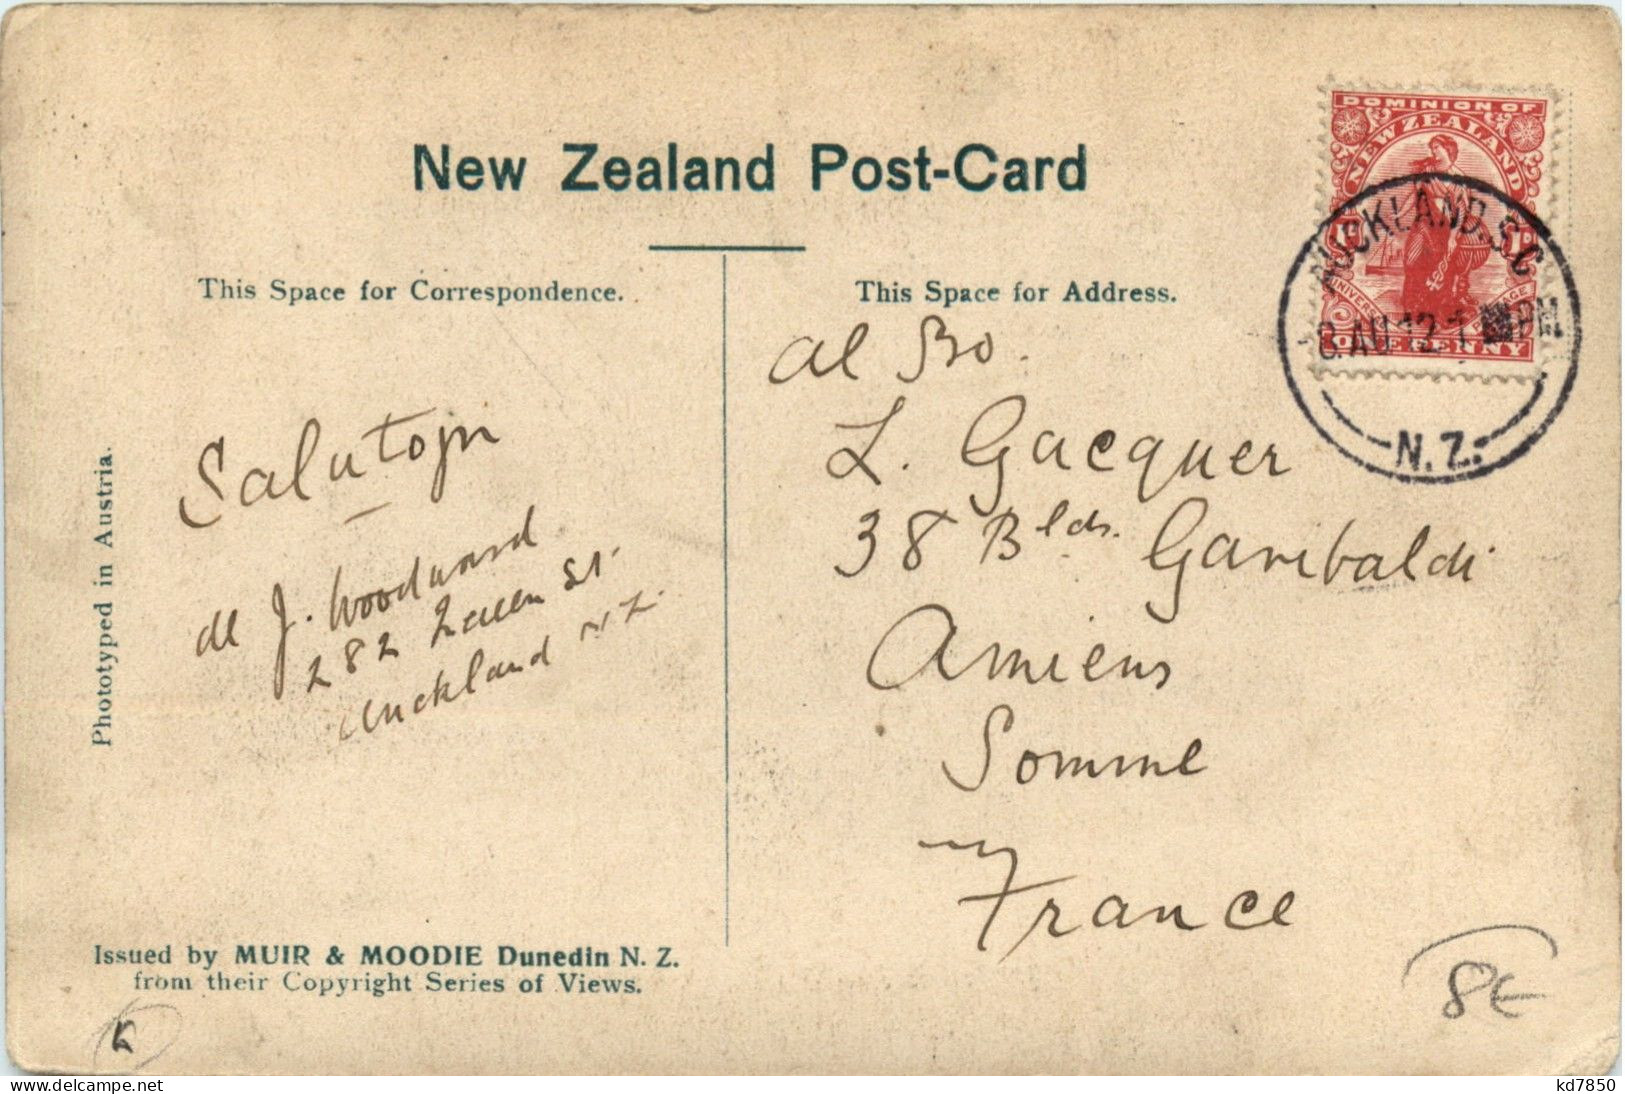 New Zealand Post-Card
This Space for Correspondence.
This Space for Address.
DOMINION OF
NEW ZEALAND
1D
UNIVERSAL POSTAGE
ONE PENNY
AUCKLAND.S.C
8.AU 12.1 PM
N.Z.
Salutojn
de J. Woodward
282 Queen St.
Auckland N.Z.
al Sro.
L. Gacquer
38 Blds. Garibaldi
Amiens
Somme
France
Phototyped in Austria.
Issued by MUIR & MOODIE Dunedin N. Z.
from their Copyright Series of Views.
8€
kd7850